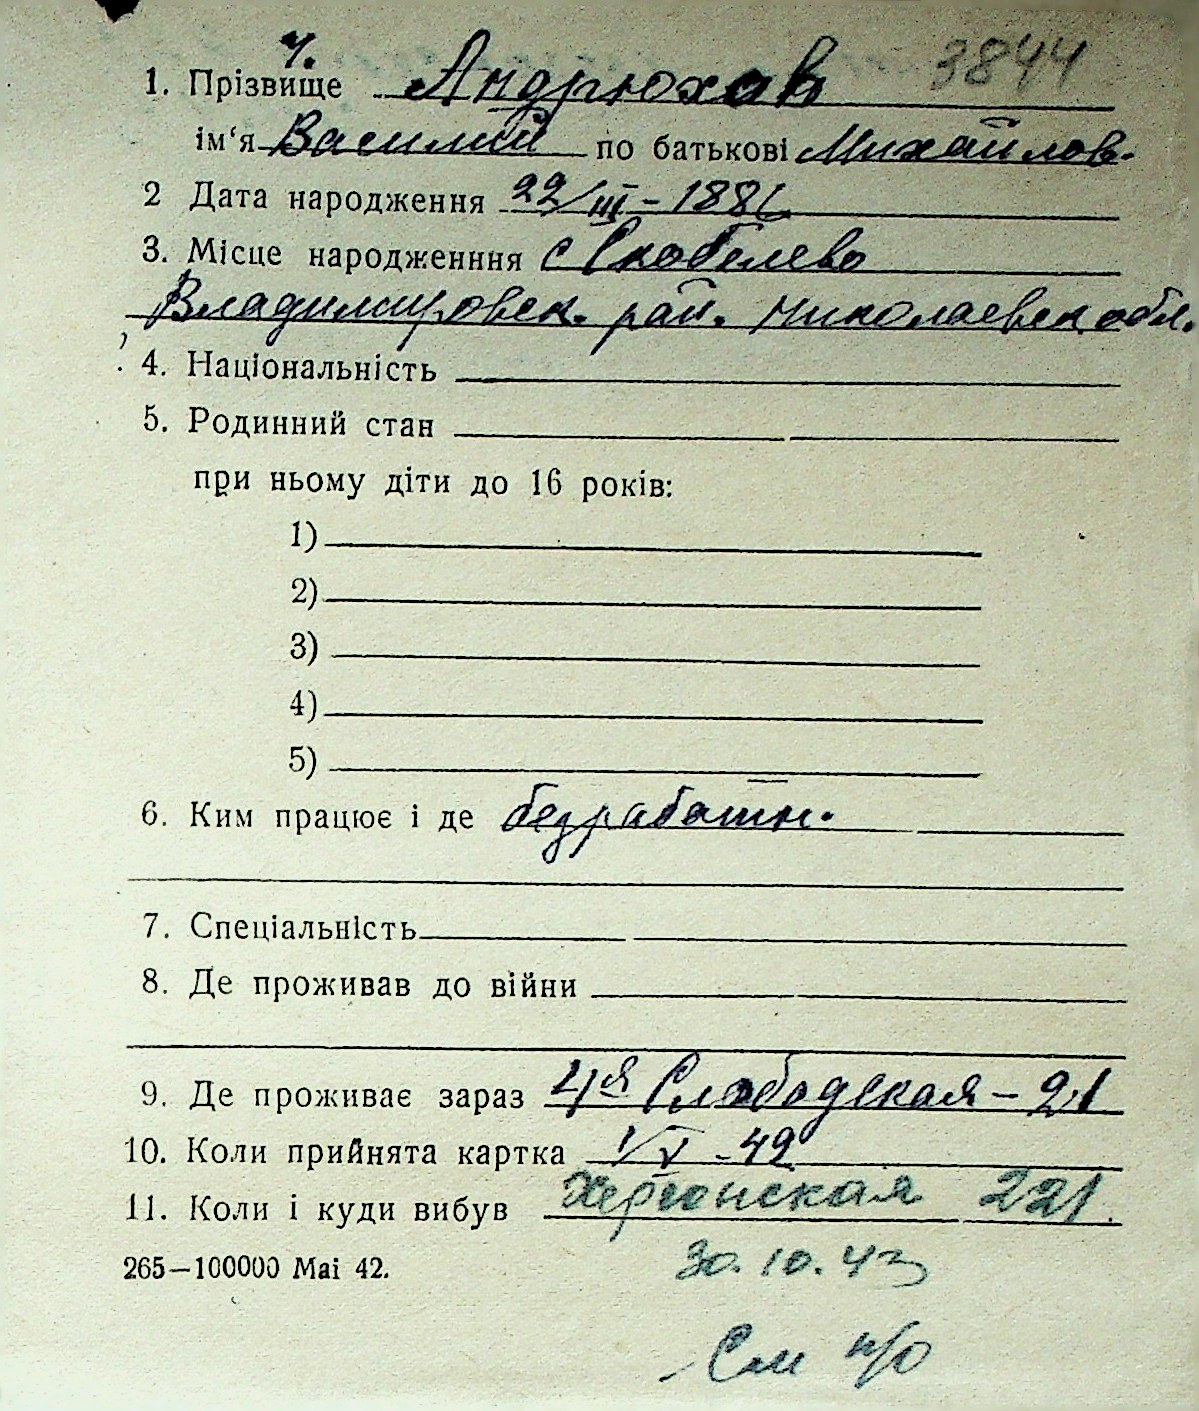 ч. 3844
1. Прізвище Андрюхов
ім‘я Василий по батькові Михайлов.
2 Дата народження 22/III – 1886
3. Місце народженння с Скобелево
Владимировск. рай. Николаевск обл.
4. Національність
5. Родинний стан
при ньому діти до 16 років:
1)
2)
3)
4)
5)
6. Ким працює і де безработн.
7. Спеціальність
8. Де проживав до війни
9. Де проживає зараз 4я Слободская – 21
10. Коли прийнята картка 1/V – 42
11. Коли і куди вибув Херсонская 221.
265—100000 Маі 42. 30. 10. 43
См н/о